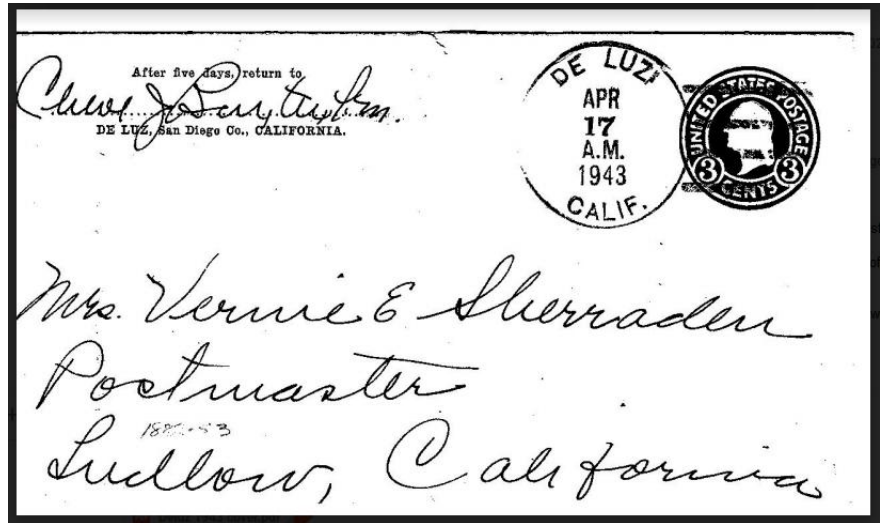 After five days, return to
DE LUZ, San Diego Co., CALIFORNIA.
DE LUZ
APR
17
A.M.
1943
CALIF.
UNITED STATES POSTAGE
3 3
CENTS
Mrs. Vernie E Sherraden
Postmaster
Ludlow, California